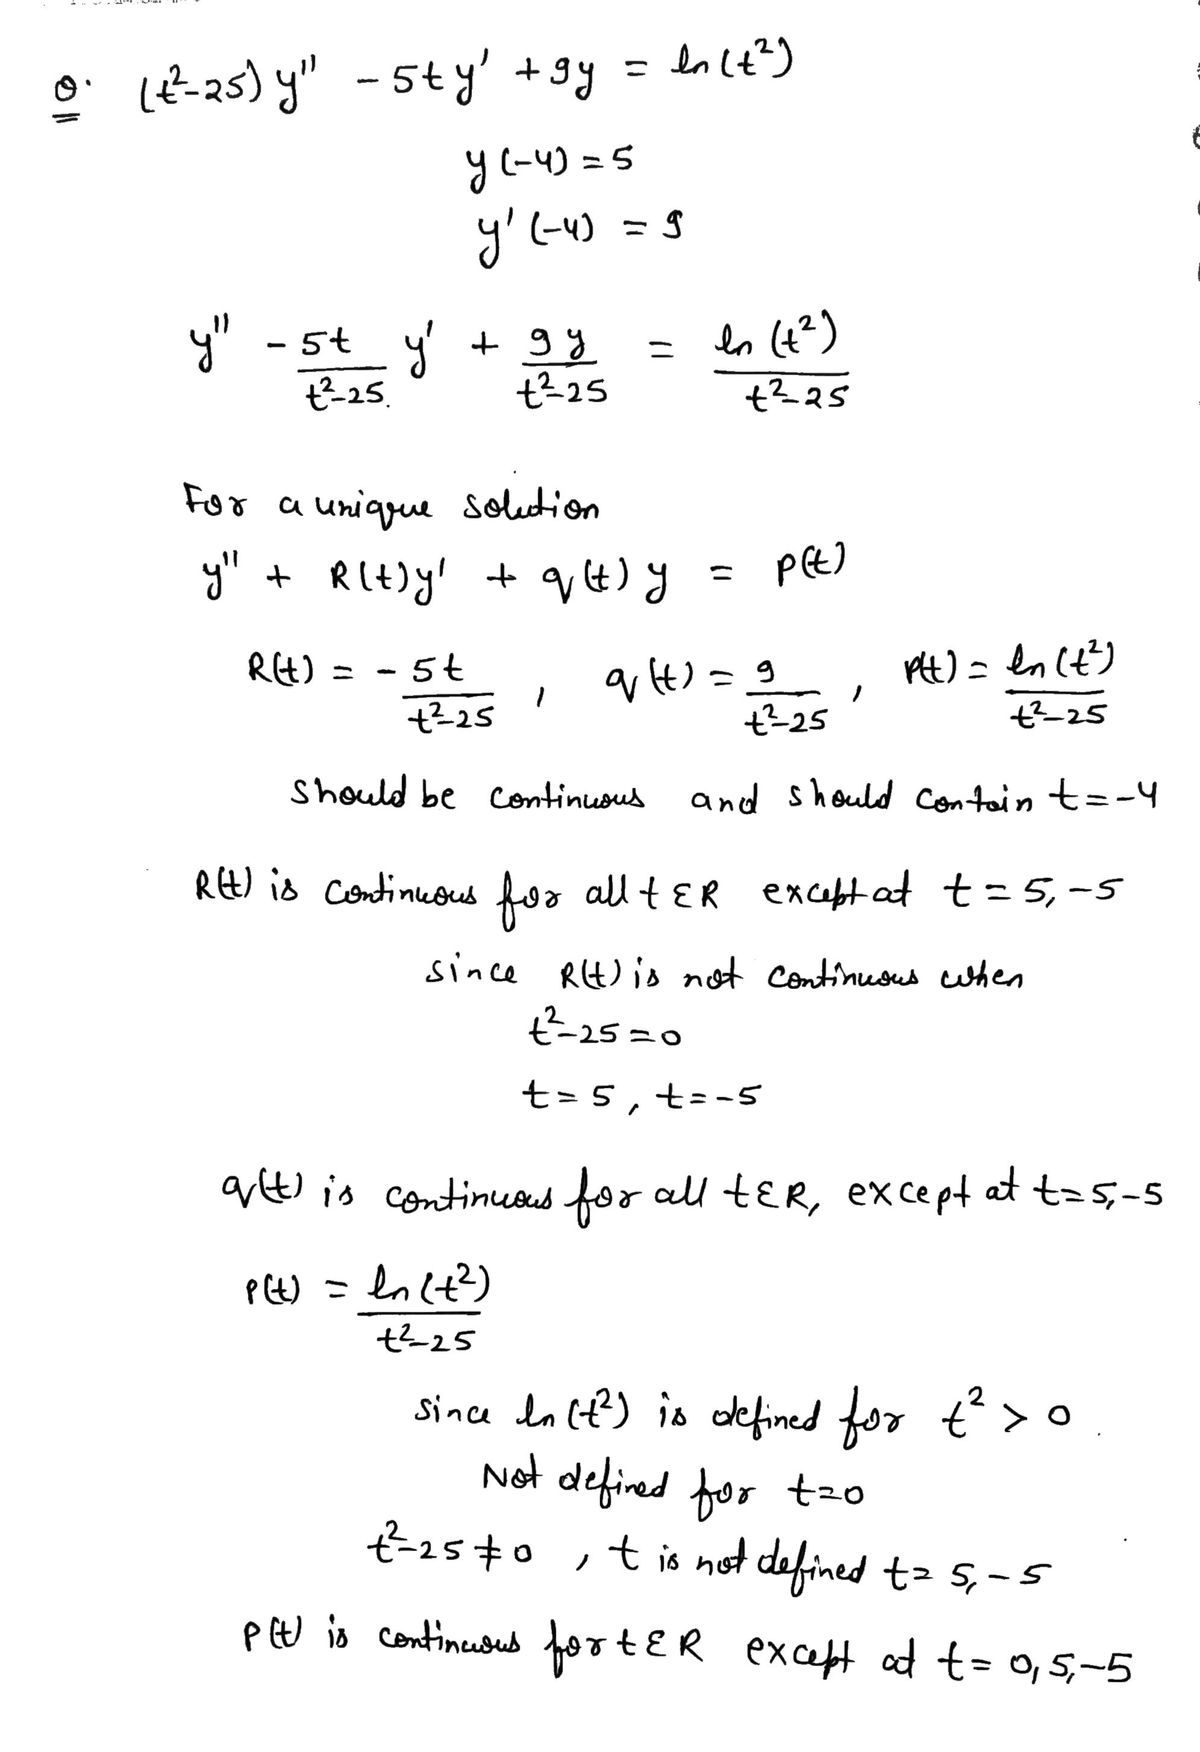 Q. (t²-25) y'' - 5t y' + 9y = ln(t²)
y(-4) = 5
y'(-4) = 9
y'' - 5t/(t²-25) y' + 9y/(t²-25) = ln(t²)/(t²-25)
For a unique solution
y'' + R(t)y' + q(t) y = p(t)
R(t) = - 5t/(t²-25) , q(t) = 9/(t²-25) , p(t) = ln(t²)/(t²-25)
should be continuous and should contain t=-4
R(t) is continuous for all t ε R except at t = 5, -5
since R(t) is not continuous when
t²-25 = 0
t = 5, t = -5
q(t) is continuous for all t ε R, except at t = 5, -5
p(t) = ln(t²)/(t²-25)
since ln(t²) is defined for t² > 0.
Not defined for t=0
t²-25 ≠ 0 , t is not defined t = 5, -5
p(t) is continuous for t ε R except at t = 0, 5, -5